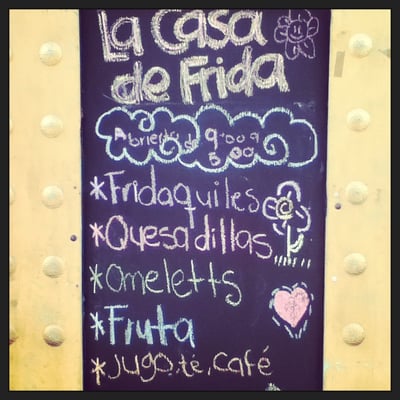 La Casa
de Frida
Abierto de 9:00 a
5:00
*Fridaquiles
*Quesadillas
*Omeletts
*Fruta
*Jugo, té, café